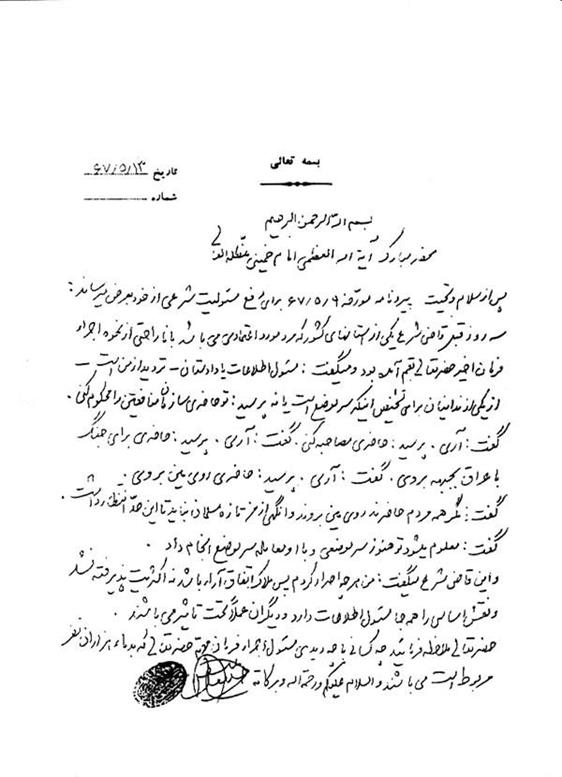 بسمه تعالی
تاریخ ۶۷/۵/۱۳
شماره
بسم الله الرحمن الرحیم
محضر مبارک آیة الله العظمی امام خمینی مدظله العالی
پس از سلام و تحیت پیرو نامه مورخه ۶۷/۵/۹ برای رفع مسئولیت شرعی از خود بعرض میرساند :
سه روز قبل قاضی شرع یکی از استانهای کشور که مرد مورد اعتمادی می باشد با ناراحتی از نحوه اجراء
فرمان اخیر حضرتعالی بقم آمده بود و میگفت : مسئول اطلاعات یا دادستان - تردید از من است -
از یکی از زندانیان برای تشخیص اینکه سر موضع است یا نه پرسید : تو حاضری سازمان منافقین را محکوم کنی .
گفت : آری . پرسید : حاضری مصاحبه کنی . گفت : آری . پرسید : حاضری برای جنگ
با عراق بجبهه بروی . گفت : آری . پرسید : حاضری روی مین بروی .
گفت : مگر همه مردم حاضرند روی مین بروند وانگهی از من تازه مسلمان نباید تا این حد انتظار داشت .
گفت : معلوم میشود تو هنوز سر موضعی و با او معامله سر موضع انجام داد .
و این قاضی شرع میگفت : من هرچه اصرار کردم پس ملاک اتفاق آراء باشد نه اکثریت پذیرفته نشد
و نقش اساسی را همه جا مسئول اطلاعات دارد و دیگران عملا تحت تاثیر می باشند .
حضرتعالی ملاحظه فرمائید چه کسانی با چه دیدی مسئول اجراء فرمان مهم حضرتعالی که بدماء هزاران نفر
مربوط است می باشند والسلام علیکم ورحمة الله وبرکاته